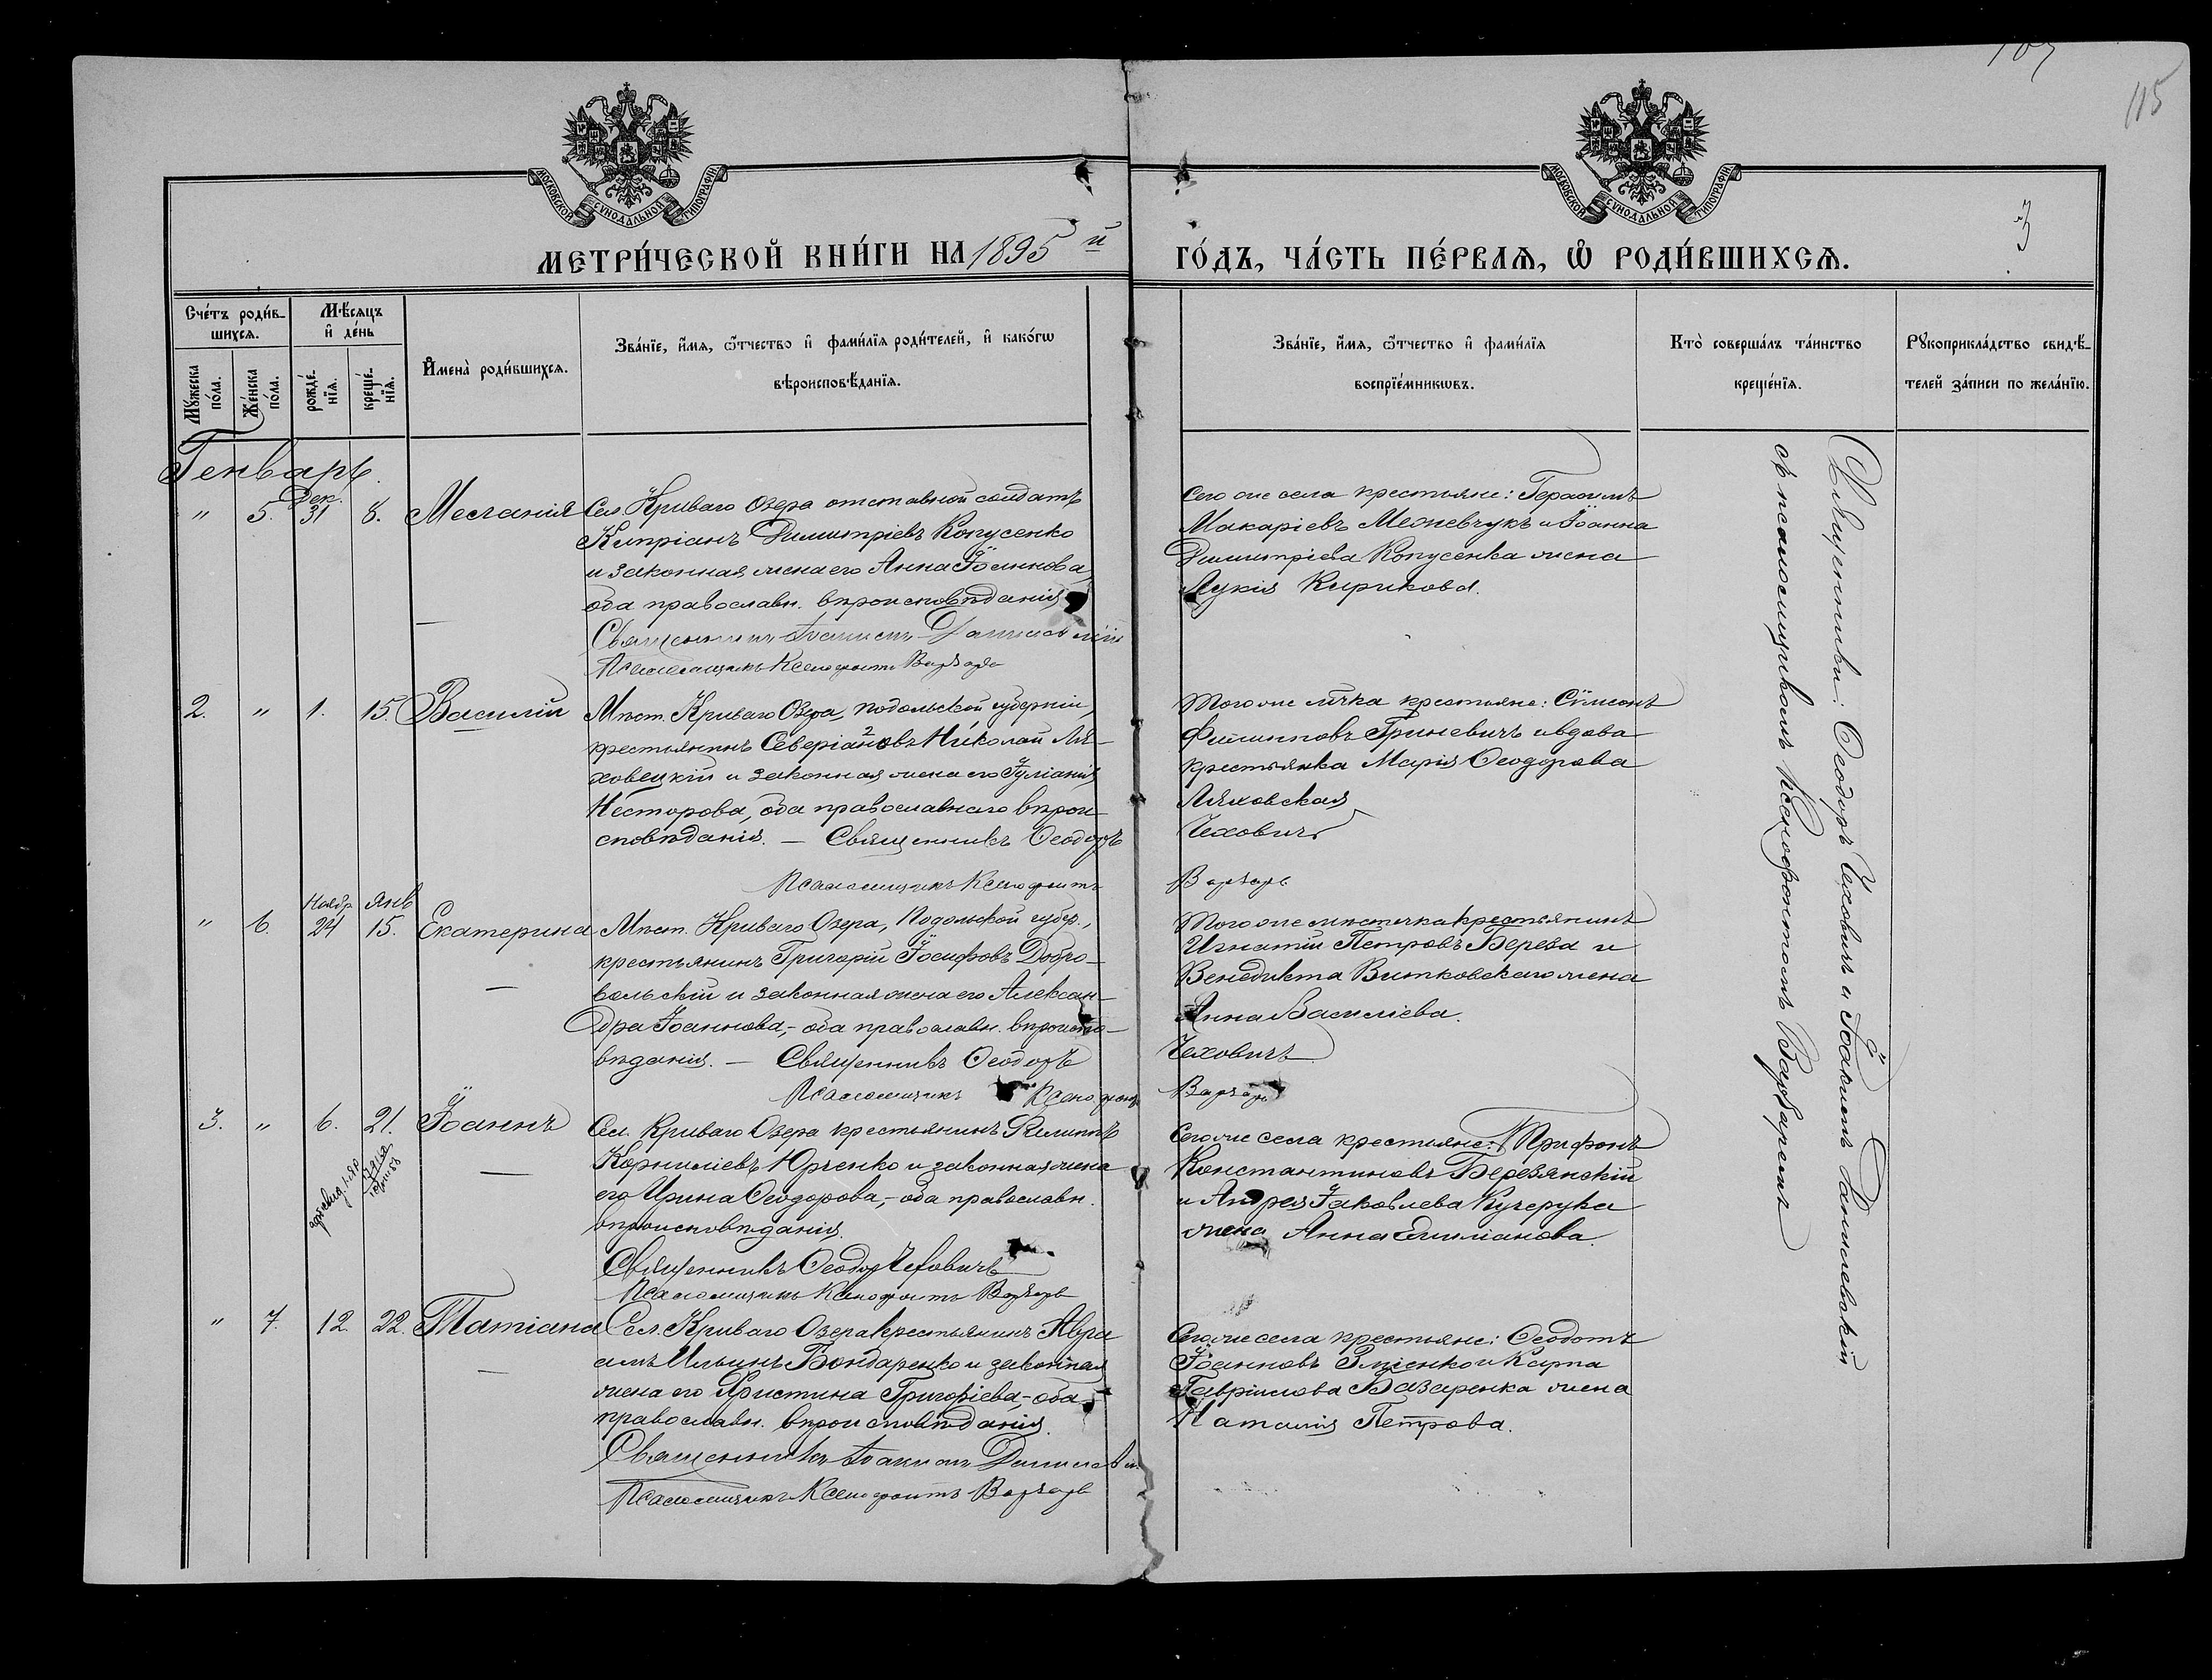 115
3
МОСКОВСКОЙ СѴНОДАЛЬНОЙ ТИПОГРАФІИ
МОСКОВСКОЙ СѴНОДАЛЬНОЙ ТИПОГРАФІИ
МЕТРИ́ЧЕСКОЙ КНИ́ГИ НА 1895 й ГО́ДЪ, ЧА́СТЬ ПЕ́РВАѦ, Ѡ҆ РОДИ́ВШИХСѦ.
Сче́тъ роди́в-
шихсѧ.
Мꙋ́жеска
по́ла.
Же́нска
по́ла.
Мѣ́сѧцъ
и҆ де́нь
рожде́-
нїѧ.
креще́-
нїѧ.
И҆мена̀ роди́вшихсѧ.
Зва́нїе, и҆́мѧ, ѻ҆́тчество и҆ фами́лїѧ роди́телей, и҆ како́гѡ
вѣроисповѣ́данїѧ.
Зва́нїе, и҆́мѧ, ѻ҆́тчество и҆ фами́лїѧ
воспрїе́мникѡвъ.
Кто̀ соверша́лъ та́инство
креще́нїѧ.
Рꙋкоприкла́дство свидѣ́-
телей за́писи по жела́нїю.
Генварь.
" 5. Дек. 31 8. Меланія
Сел. Криваго Озера отставной солдатъ
Кипріанъ Димитріевъ Копусенко
и законная жена его Анна Іоаннова,
оба православн. вѣроисповѣданія
Священникъ Іоакимъ
Псаломщикъ Ксенофонтъ Варзарь
Сего же села крестьяне: Герасимъ
Макаріевъ Межевчукъ и Іоанна
Димитріева Копусенка жена
Лукія Кирикова.
2. " 1. 15. Василій
Мѣст. Криваго Озера, Подольской губерніи,
крестьянинъ Северіановъ Николай Ля-
ховецкій и законная жена его Іуліанія
Несторова, оба православнаго вѣрои-
сповѣданія. — Священникъ Ѳеодоръ Чеховичъ
Псаломщикъ Ксенофонтъ Варзарь
Того же м-чка крестьяне: Сѵмеонъ
Филипповъ Гриневичъ и вдова
крестьянка Марія Ѳеодорова
Ляховская
" 6. Ноябр 24 Янв 15. Екатерина
Мѣст. Криваго Озера, Подольской губер.,
крестьянинъ Григорій Іосифовъ Добро-
вольскій и законная жена его Алексан-
дра Іоаннова,- оба православн. вѣроиспо-
вѣданія. — Священникъ Ѳеодоръ Чеховичъ
Псаломщикъ Ксенофонтъ Варзарь
Того же мѣстечка крестьянинъ
Игнатій Петровъ Береза и
Венедикта Витковскаго жена
Анна Василіева.
3. " 6. 21. Іоаннъ
Сел. Криваго Озера крестьянинъ Филиппъ
Корниліевъ Юрченко и законная жена
его Ирина Ѳеодорова,- оба православн.
вѣроисповѣданія.
Священникъ Ѳеодоръ Чеховичъ
Псаломщикъ Ксенофонтъ Варзарь
Сего же села крестьяне: Трифонъ
Константиновъ Березянскій
и Андрея Іаковлева Кучерука
жена Анна Емиліанова.
" 7. 12. 22. Татіана
Сел. Криваго Озера крестьянинъ Авра-
амъ Ильинъ Бондаренко и законная
жена его Христина Григоріева,- оба
православн. вѣроисповѣданія.
Священникъ Іоакимъ
Псаломщикъ Ксенофонтъ Варзарь
Сего же села крестьяне: Ѳеодотъ
Іоанновъ Зміенко и Карпа
Гавріилова Базаренка жена
Наталія Петрова.
Священники: Ѳеодоръ Чеховичъ и Іоакимъ Данилевскій
съ псаломщикомъ Ксенофонтомъ Варзаремъ